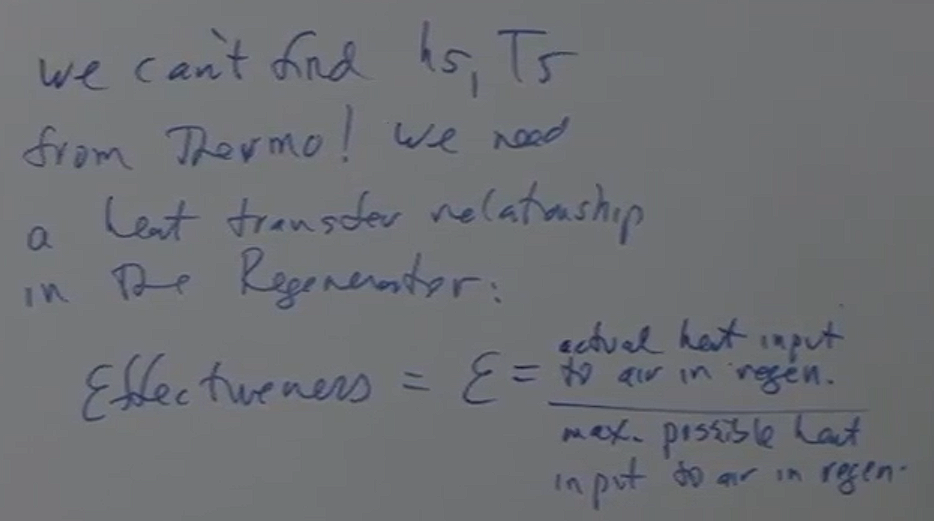 we can't find h5, T5
from Thermo! we need
a heat transfer relationship
in the Regenerator:
Effectiveness = ε = actual heat input
to air in regen.
max. possible heat
input to air in regen.